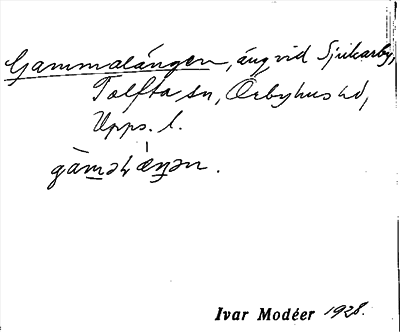 Gammalängen, äng vid Sjukarby,
Tolfta sn, Örbyhus hd,
Upps. l.
gàməḷæ̀ŋən.
Ivar Modéer 1928.